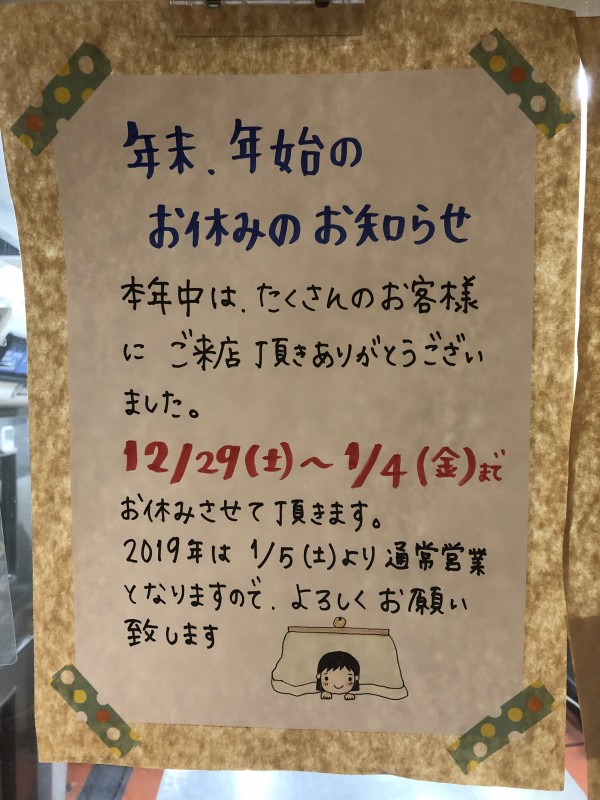 年末、年始の
お休みのお知らせ
本年中は、たくさんのお客様
に ご来店頂きありがとうござい
ました。
12/29(土)～1/4(金)まで
お休みさせて頂きます。
2019年は 1/5(土)より通常営業
となりますので、よろしくお願い
致します